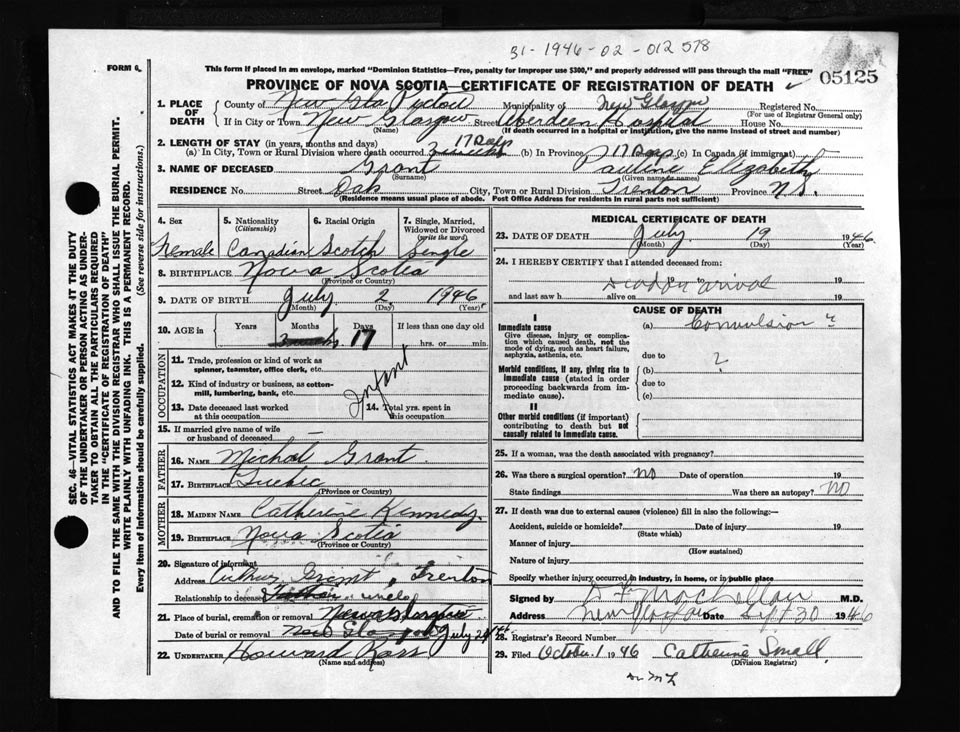 31-1946-02-012578
FORM 6.
This form if placed in an envelope, marked "Dominion Statistics—Free, penalty for improper use $300," and properly addressed will pass through the mail "FREE"
05125
PROVINCE OF NOVA SCOTIA—CERTIFICATE OF REGISTRATION OF DEATH
1. PLACE OF DEATH
County of Pictou Municipality of New Glasgow Registered No.
(For use of Registrar General only)
If in City or Town New Glasgow Street Aberdeen Hospital House No.
(Name) (If death occurred in a hospital or institution, give the name instead of street and number)
2. LENGTH OF STAY (in years, months and days) 17 Days
(a) In City, Town or Rural Division where death occurred 3 weeks (b) In Province 17 Days (c) In Canada (if immigrant)
3. NAME OF DECEASED Grant Pauline Elizabeth
(Surname) (Given names)
RESIDENCE No. Street Oak City, Town or Rural Division Trenton Province N.S.
(Residence means usual place of abode. Post Office Address for residents in rural parts not sufficient)
4. Sex
Female
5. Nationality
(Citizenship)
Canadian
6. Racial Origin
Scotch
7. Single, Married, Widowed or Divorced
(write the word)
Single
8. BIRTHPLACE Nova Scotia
(Province or Country)
9. DATE OF BIRTH July 2, 1946.
(Month) (Day) (Year)
10. AGE in Years Months Days If less than one day old
3 weeks 17 hrs. or min.
OCCUPATION
11. Trade, profession or kind of work as spinner, teamster, office clerk, etc.
12. Kind of industry or business, as cotton-mill, lumbering, bank, etc.
Infant
13. Date deceased last worked at this occupation
14. Total yrs. spent in this occupation
15. If married give name of wife or husband of deceased
FATHER
16. NAME Michal Grant.
17. BIRTHPLACE Quebec
(Province or Country)
MOTHER
18. MAIDEN NAME Catherine Kennedy.
19. BIRTHPLACE Nova Scotia
(Province or Country)
20. Signature of informant
Address Arthur Grant, Trenton
Relationship to deceased uncle
21. Place of burial, cremation or removal
Date of burial or removal New Glasgow July 20
22. UNDERTAKER Howard Ross
(Name and address)
MEDICAL CERTIFICATE OF DEATH
23. DATE OF DEATH July 19 1946.
(Month) (Day) (Year)
24. I HEREBY CERTIFY that I attended deceased from:
Dead on arrival
19 to 19
and last saw h alive on 19
CAUSE OF DEATH
I
Immediate cause
Give disease, injury or complication which caused death, not the mode of dying, such as heart failure, asphyxia, asthenia, etc.
(a) Convulsion ?
due to
Morbid conditions, if any, giving rise to immediate cause (stated in order proceeding backwards from immediate cause).
(b) ?
due to
(c)
II
Other morbid conditions (if important) contributing to death but not causally related to immediate cause.
25. If a woman, was the death associated with pregnancy?
26. Was there a surgical operation? NO Date of operation 19
State findings Was there an autopsy? NO
27. If death was due to external causes (violence) fill in also the following:—
Accident, suicide or homicide? Date of injury 19
(State which)
Manner of injury
(How sustained)
Nature of injury
Specify whether injury occurred in industry, in home, or in public place
Signed by M.D.
Address New Glasgow Date Sept 30 1946
28. Registrar's Record Number
29. Filed October 1 1946 Catherine Small.
(Division Registrar)
SEC. 46—VITAL STATISTICS ACT MAKES IT THE DUTY OF THE UNDERTAKER OR PERSON ACTING AS UNDERTAKER TO OBTAIN ALL THE PARTICULARS REQUIRED IN THE "CERTIFICATE OF REGISTRATION OF DEATH"
AND TO FILE THE SAME WITH THE DIVISION REGISTRAR WHO SHALL ISSUE THE BURIAL PERMIT.
WRITE PLAINLY WITH UNFADING INK. THIS IS A PERMANENT RECORD.
Every item of information should be carefully supplied. (See reverse side for instructions.)